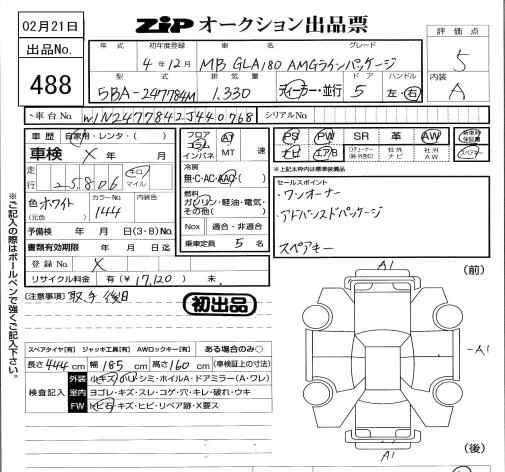 02月21日
ZIP オークション出品票
出品No.
488
年式
初年度登録
車名
グレード
4年12月
MB GLA180 AMGラインパッケージ
評価点
5
型式
排気量
ドア
ハンドル
5BA-247784M
1.330
ディーラー・並行
5
左・右
内装
A
車台No.
W1N2477842J440768
シリアルNo.
車歴
自家用・レンタ・( )
車検
X 年 月
走行
25,806
キロ
マイル
色
(元色)
ホワイト
カラーNo.
1444
内装色
予備検 年 月 日(3・8)No.
書類有効期限 年 月 日迄
登録No.
X
リサイクル料金 有(¥17,120) 未.
フロア
コラム
インパネ
AT
MT
速
冷房
無・C・AC・AAC
燃料
ガソリン・軽油・電気・
その他( )
Nox 適合・非適合
乗車定員 5 名
PS
PW
SR
革
AW
新車時保証書
ナビ
エアB
社外ナビ
社外AW
スペアキー
※上記太枠内は標準装備品
セールスポイント
・ワンオーナー
・アドバンスドパッケージ
スペアキー
[注意事項] 取手後日
初出品
※ご記入の際はボールペンで強くご記入下さい。
スペアタイヤ[有] ジャッキ工具[有] AWロックキー[有] ある場合のみ○
長さ444cm 幅185cm 高さ160cm (車検証上の寸法)
検査記入
外装 小キズ・小U・シミ・ホイルA・ドアミラー(A・ワレ)
室内 ヨゴレ・キズ・スレ・コゲ・穴・キレ・破れ・ウキ
FW トビ石・キズ・ヒビ・リペア跡・X要ス
(前)
A1
A1
A1
(後)